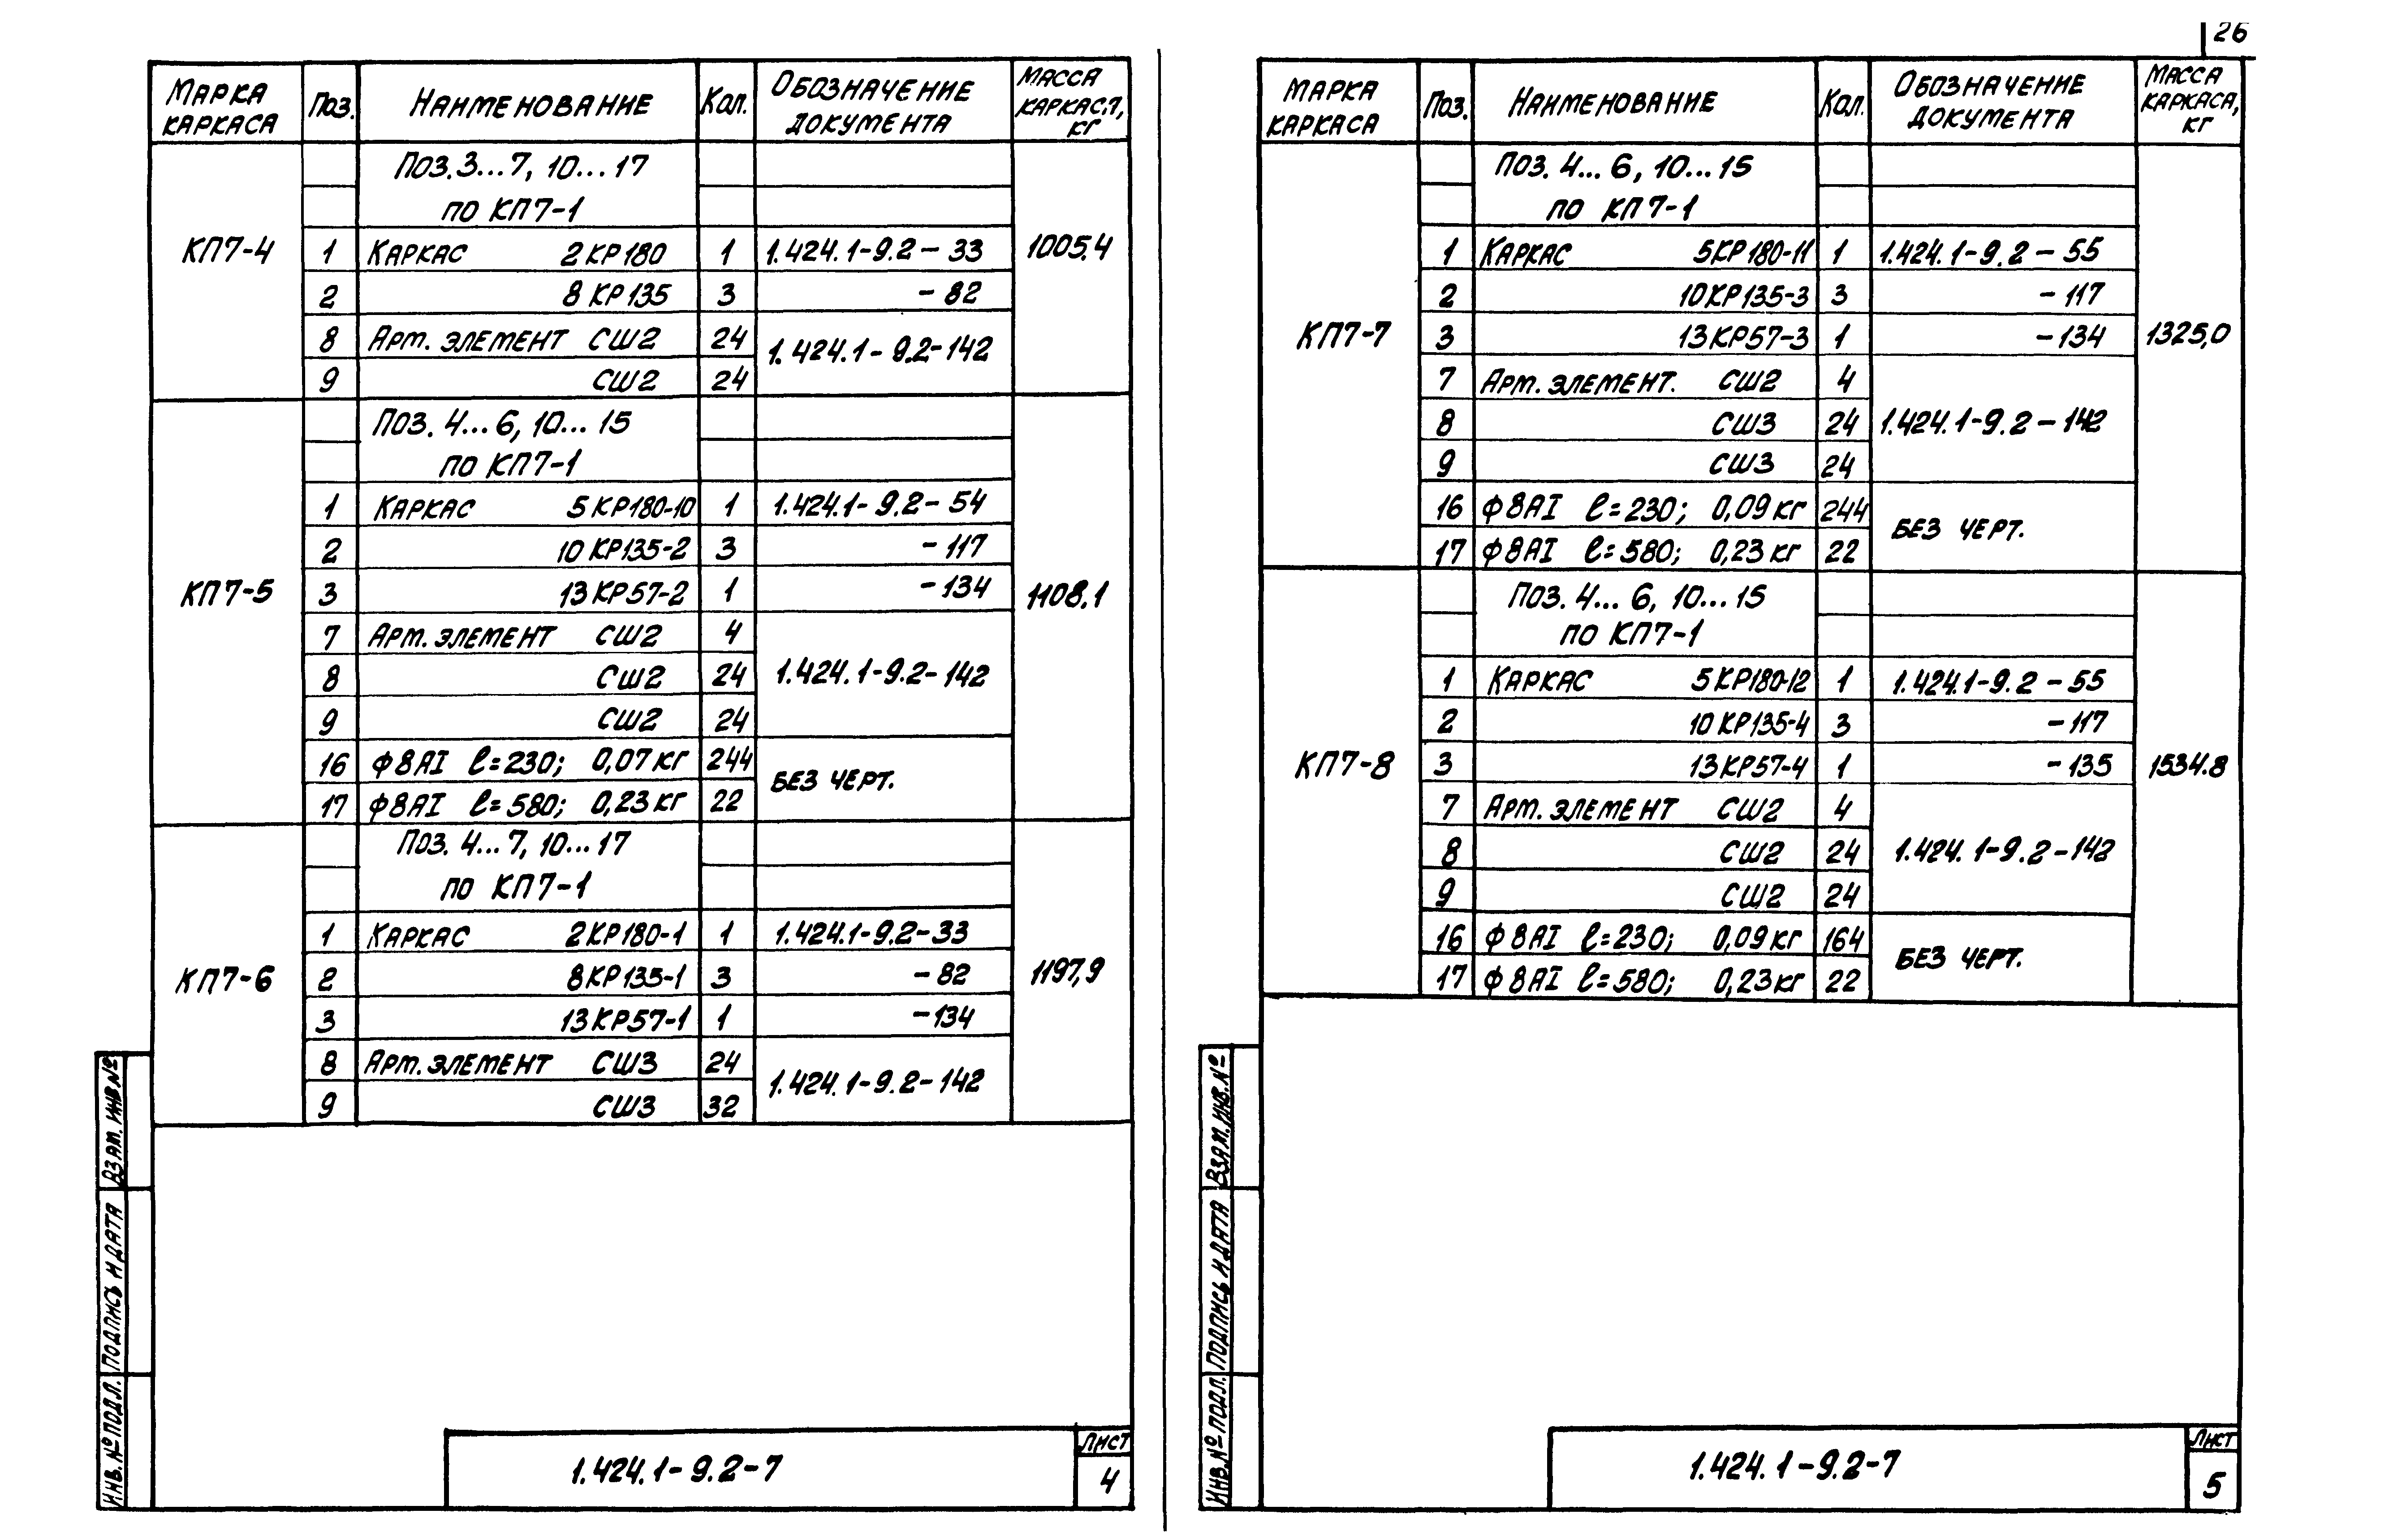 26
МАРКА КАРКАСА ПОЗ. НАИМЕНОВАНИЕ КОЛ. ОБОЗНАЧЕНИЕ ДОКУМЕНТА МАССА КАРКАСА, КГ
ПОЗ. 3...7, 10...17
ПО КП7-1
КП7-4 1 КАРКАС 2КР180 1 1.424.1-9.2-33 1005,4
2 8КР135 3 -82
8 АРМ. ЭЛЕМЕНТ СШ2 24 1.424.1-9.2-142
9 СШ2 24
ПОЗ. 4...6, 10...15
ПО КП7-1
1 КАРКАС 5КР180-10 1 1.424.1-9.2-54
2 10КР135-2 3 -117
КП7-5 3 13КР57-2 1 -134 1108,1
7 АРМ. ЭЛЕМЕНТ СШ2 4
8 СШ2 24 1.424.1-9.2-142
9 СШ2 24
16 Ф8АI ℓ=230; 0,07кг 244 БЕЗ ЧЕРТ.
17 Ф8АI ℓ=580; 0,23кг 22
ПОЗ. 4...7, 10...17
ПО КП7-1
1 КАРКАС 2КР180-1 1 1.424.1-9.2-33
КП7-6 2 8КР135-1 3 -82 1197,9
3 13КР57-1 1 -134
8 АРМ. ЭЛЕМЕНТ СШ3 24 1.424.1-9.2-142
9 СШ3 32
ВЗАМ. ИНВ.№
ПОДПИСЬ И ДАТА
ИНВ.№ ПОДЛ.
1.424.1-9.2-7
ЛИСТ
4
МАРКА КАРКАСА ПОЗ. НАИМЕНОВАНИЕ КОЛ. ОБОЗНАЧЕНИЕ ДОКУМЕНТА МАССА КАРКАСА, КГ
ПОЗ. 4...6, 10...15
ПО КП7-1
1 КАРКАС 5КР180-11 1 1.424.1-9.2-55
2 10КР135-3 3 -117
КП7-7 3 13КР57-3 1 -134 1325,0
7 АРМ. ЭЛЕМЕНТ. СШ2 4
8 СШ3 24 1.424.1-9.2-142
9 СШ3 24
16 Ф8АI ℓ=230; 0,09кг 244 БЕЗ ЧЕРТ.
17 Ф8АI ℓ=580; 0,23кг 22
ПОЗ. 4...6, 10...15
ПО КП7-1
1 КАРКАС 5КР180-12 1 1.424.1-9.2-55
2 10КР135-4 3 -117
КП7-8 3 13КР57-4 1 -135 1534.8
7 АРМ. ЭЛЕМЕНТ СШ2 4
8 СШ2 24 1.424.1-9.2-142
9 СШ2 24
16 Ф8АI ℓ=230; 0,09кг 164 БЕЗ ЧЕРТ.
17 Ф8АI ℓ=580; 0,23кг 22
ВЗАМ. ИНВ.№
ПОДПИСЬ И ДАТА
ИНВ.№ ПОДЛ.
1.424.1-9.2-7
ЛИСТ
5